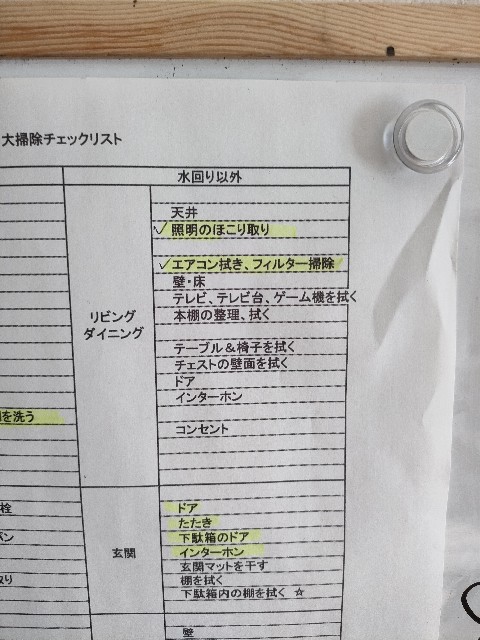 大掃除チェックリスト
水回り以外
天井
✓照明のほこり取り
✓エアコン拭き、フィルター掃除
壁・床
テレビ、テレビ台、ゲーム機を拭く
本棚の整理、拭く
リビング
ダイニング
テーブル＆椅子を拭く
チェストの壁面を拭く
ドア
インターホン
を洗う
コンセント
栓
ドア
たたき
下駄箱のドア
インターホン
玄関
玄関マットを干す
棚を拭く
下駄箱内の棚を拭く ☆
壁